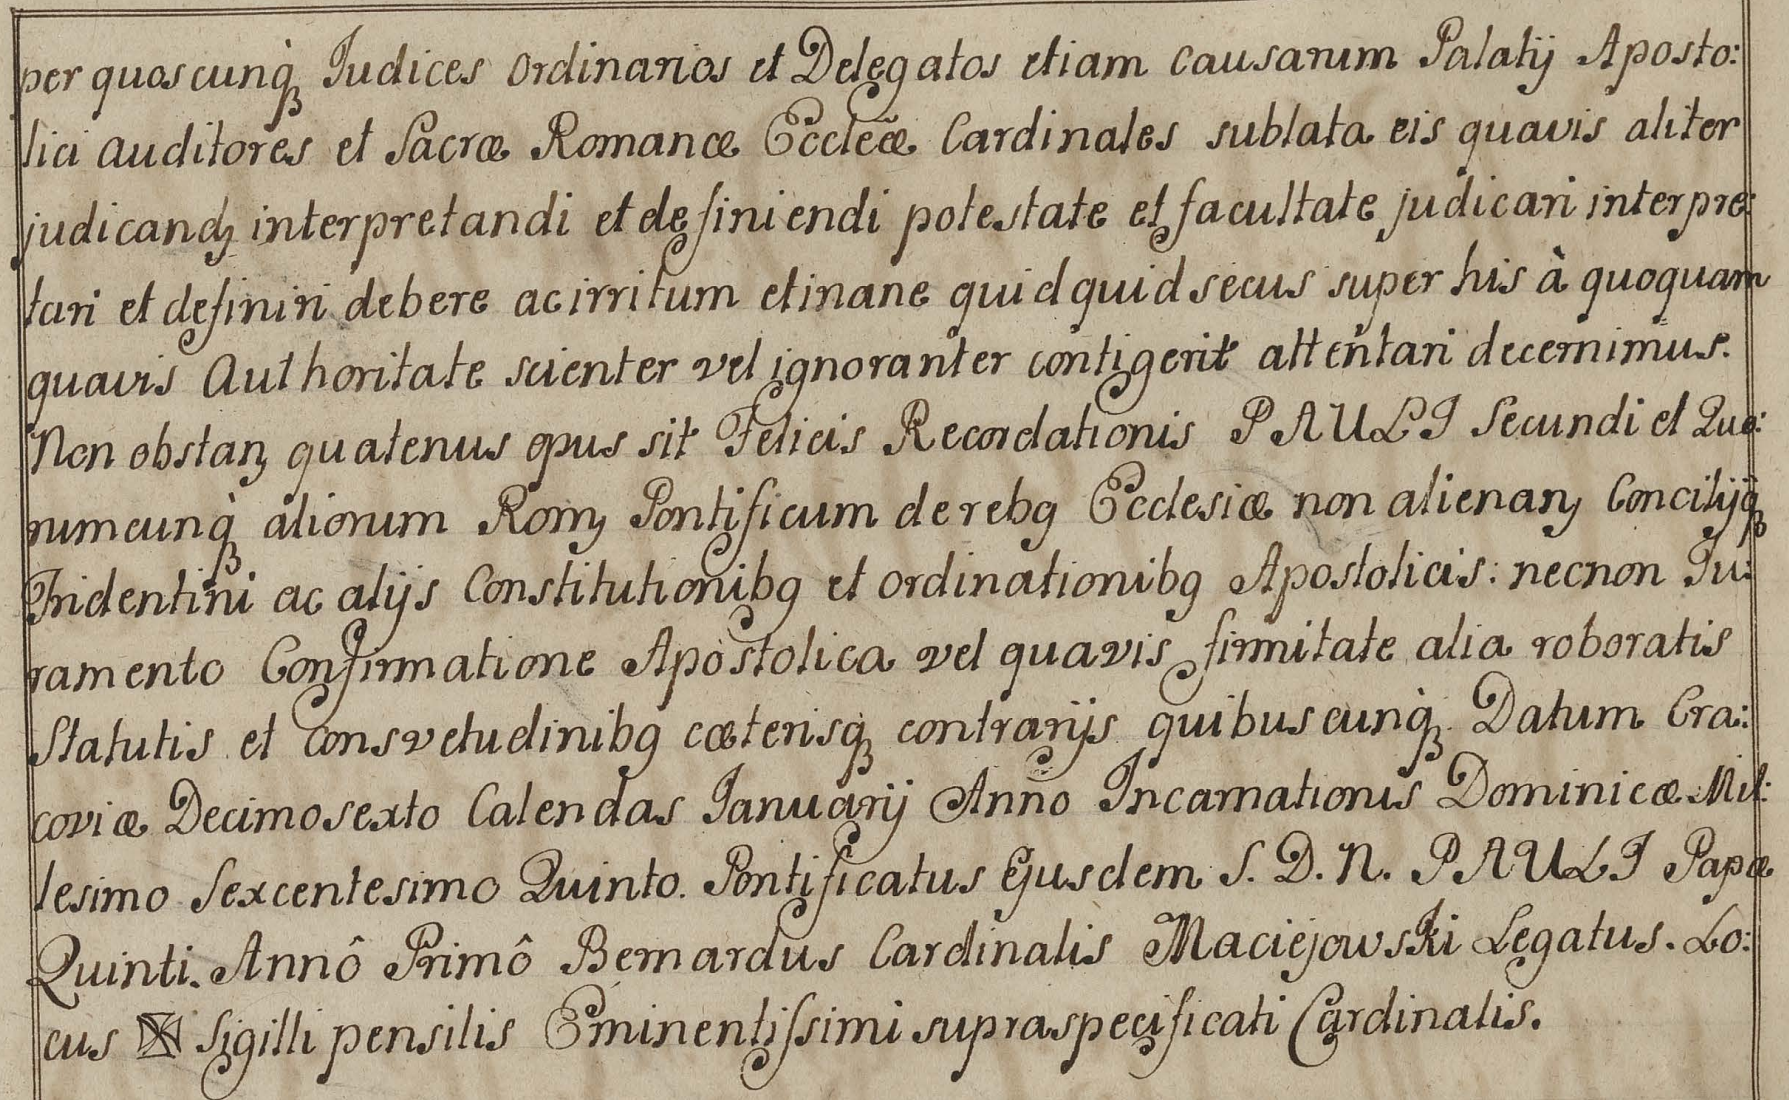 per quoscunq̀ꝫ Judices Ordinarios et Delegatos etiam Causarum Palatij Aposto:
lici Auditores et Sacræ Romanæ Eccleæ̃ Cardinales sublata eis quavis aliter
judicandꝫ interpretandi et definiendi potestate et facultate judicari interpre:
tari et definiri debere ac irritum et inane quidquid secus super his à quoquam
quavis Authoritate scienter vel ignoranter contigerit attentari decernimus.
Non obstanꝫ quatenus opus sit Felicis Recordationis PAULI Secundi et Quo:
rumcunq̀ꝫ aliorum Romꝫ Pontificum de rebꝯ Ecclesiæ non alienanꝫ Concilijqꝫ
Tridentini ac alijs Constitutionibꝯ et Ordinationibꝯ Apostolicis: necnon Ju:
ramento Confirmatione Apostolica vel quavis firmitate alia roboratis
Statutis et Consvetudinibꝯ cæterisqꝫ contrarijs quibuscunq̀ꝫ. Datum Cra:
coviæ Decimosexto Calendas Januarij Anno Incarnationis Dominicæ Mil:
lesimo Sexcentesimo Quinto. Pontificatus Ejusdem S. D. N. PAULI Papæ
Quinti. Annô Primô Bernardus Cardinalis Maciejowski Legatus. Lo:
cus Sigilli pensilis Eminentissimi supraspecificati Cardinalis.